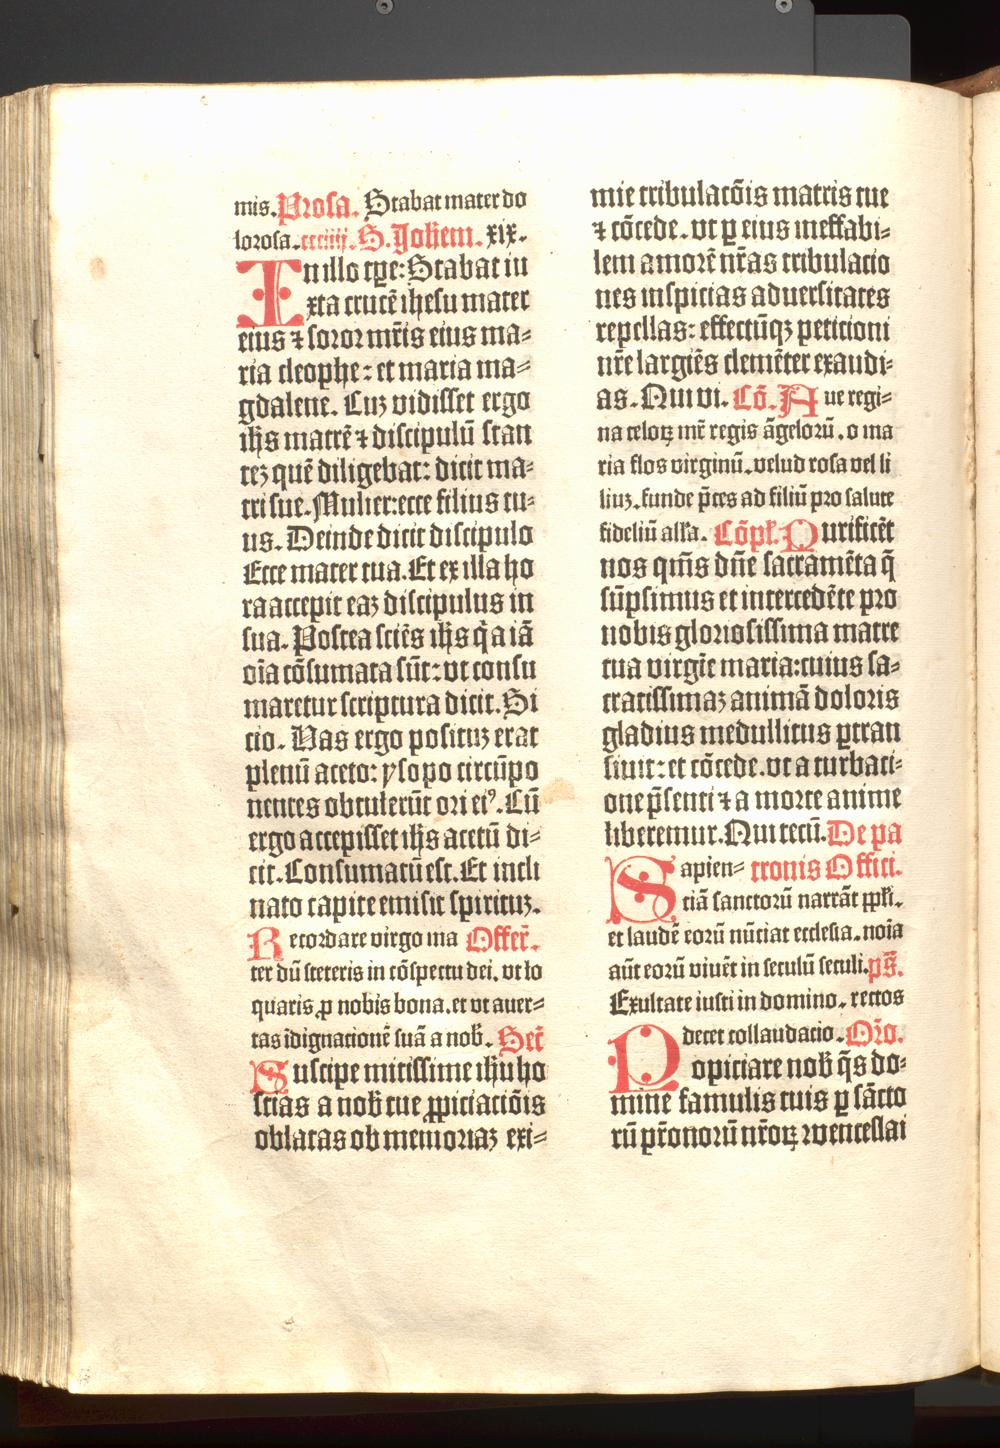 mis. Prosa. Stabat mater do
lorosa. ccciiij. S. Joħem. xix.
In illo tꝑe: Stabat iu
xta crucē ihesu mater
eius ⁊ soror mr̄is eius ma⸗
ria cleophe: et maria ma⸗
gdalene. Cuꝫ vidisset ergo
ihs̄ matrē ⁊ discipulū stan
teꝫ quē diligebat: dicit ma⸗
tri sue. Mulier: ecce filius tu⸗
us. Deinde dicit discipulo
Ecce mater tua. Et ex illa ho
ra accepit eaꝫ discipulus in
sua. Postea sciēs ihs̄ q̄a iā
oīa cōsumata sūt: vt consu
maretur scriptura dicit. Si
cio. Vas ergo posituꝫ erat
plenū aceto: ysopo circūpo
nentes obtulerūt ori eiꝰ. Cū
ergo accepisset ihs̄ acetū di⸗
cit. Consumatū est. Et incli
nato capite emisit spirituꝫ.
Recordare virgo ma Offer̄.
ter dū steteris in cōspectu dei. vt lo
quaris ꝓ nobis bona. et vt auer⸗
tas īdignacionē suā a nob̄. Secr̄
Suscipe mitissime ihu ho
stias a nob̄ tue ꝓpiciaciōis
oblatas ob memoriaꝫ exi⸗
mie tribulacōis matris tue
⁊ cōcede. vt ꝑ eius ineffabi⸗
lem amorē nr̄as tribulacio
nes inspicias aduersitates
repellas: effectūqꝫ peticioni
nr̄e largiēs clemēter exaudi⸗
as. Qui vi. Cō. Aue regi⸗
na celoꝝ mr̄ regis āgelorū. o ma
ria flos virginū. velud rosa vel li
liuꝫ. funde p̄ces ad filiū pro salute
fideliū alla. Cōpl. Purificēt
nos qm̄s dn̄e sacramēta q̄
sūpsimus et intercedēte pro
nobis gloriosissima matre
tua virgīe maria: cuius sa⸗
cratissimaꝫ animā doloris
gladius medullitus ꝑtran
siuit: et cōcede. vt a turbaci⸗
one p̄senti ⁊ a morte anime
liberemur. Qui tecū. De pa
Sapien⸗ tronis Offici.
ciā sanctorū narrāt ꝓpli.
et laudē eorū nūciat ecclesia. noīa
aūt eorū viuēt in seculū seculi. ps̄.
Exultate iusti in domino. rectos
decet collaudacio. Oro̅.
Propiciare nob̄ q̄s do⸗
mine famulis tuis ꝑ sācto
rū pr̄onorū nr̄oꝝ wencellai